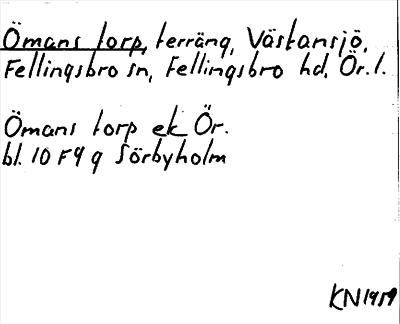 Ömans torp, terräng, Västansjö,
Fellingsbro sn, Fellingsbro hd, Ör. l.
Ömans torp ek Ör.
bl. 10 F 9 g Sörbyholm
KN 1959